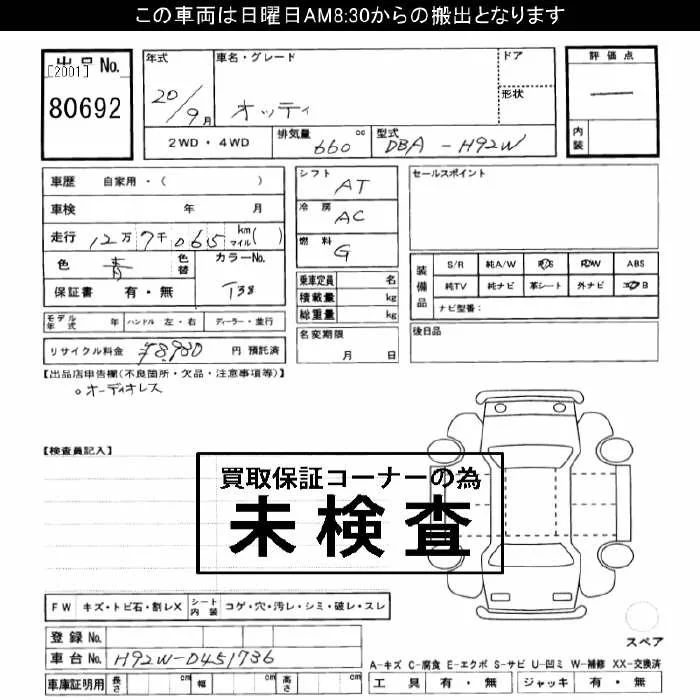 この車両は日曜日AM8:30からの搬出となります
出品No.
[2001]
80692
年式
20/9月
車名・グレード
オッティ
ドア
形状
評価点
―
内装
2WD・4WD
排気量 660 cc
型式 DBA-H92W
車歴 自家用・( )
車検 年 月
走行 12万7千065 km マイル( )
色 青 色替 カラーNo. T38
保証書 有・無
モデル年式 年 ハンドル 左・右 ディーラー・並行
リサイクル料金 ¥8,980 円 預託済
シフト AT
冷房 AC
燃料 G
乗車定員 名
積載量 kg
総重量 kg
名変期限
月 日
セールスポイント
装備品
S/R 純A/W P/S P/W ABS
純TV 純ナビ 革シート 外ナビ エアB
ナビ型番:
後日品
【出品店申告欄(不良箇所・欠品・注意事項等)】
○オーディオレス
【検査員記入】
買取保証コーナーの為
未検査
FW キズ・トビ石・割レX シート内装 コゲ・穴・汚レ・シミ・破レ・スレ
登録No.
車台No. H92W-0451736
車庫証明用 長さ cm 幅 cm 高さ cm
スペア
A-キズ C-腐食 E-エクボ S-サビ U-凹ミ W-補修 XX-交換済
工具 有・無 ジャッキ 有・無